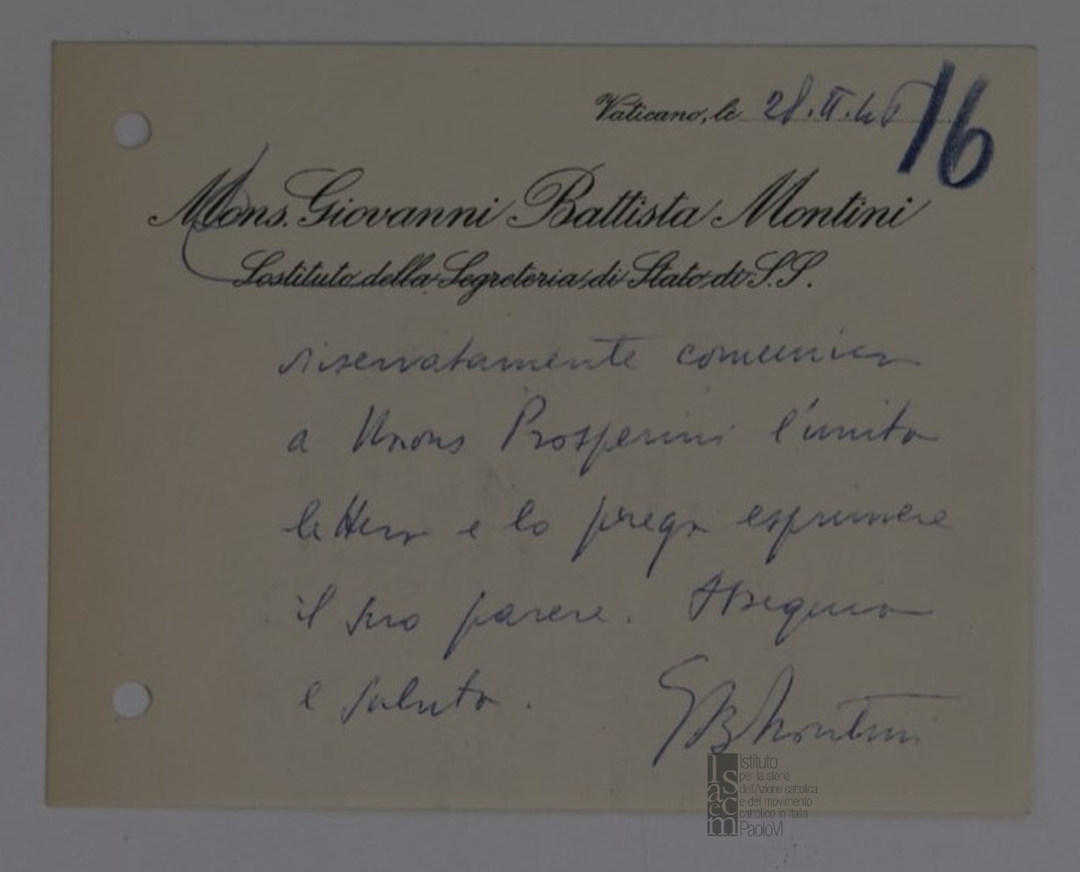 16
Vaticano, li 28.II.46
Mons. Giovanni Battista Montini
Sostituto della Segreteria di Stato di S.S.
riservatamente comunica
a Mons Prosperini l'unita
lettera e lo prega esprimere
il suo parere. Ossequia
e saluta.
GBMontini
Isacem
Istituto
per la storia
dell'Azione cattolica
e del movimento
cattolico in Italia
PaoloVI